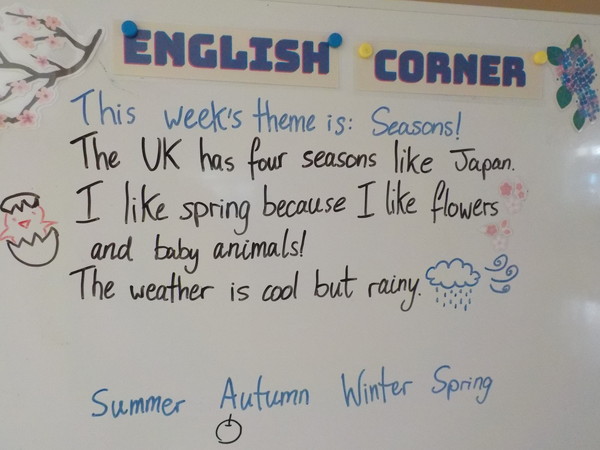 ENGLISH CORNER
This week's theme is: Seasons!
The UK has four seasons like Japan.
I like spring because I like flowers
and baby animals!
The weather is cool but rainy.
Summer Autumn Winter Spring